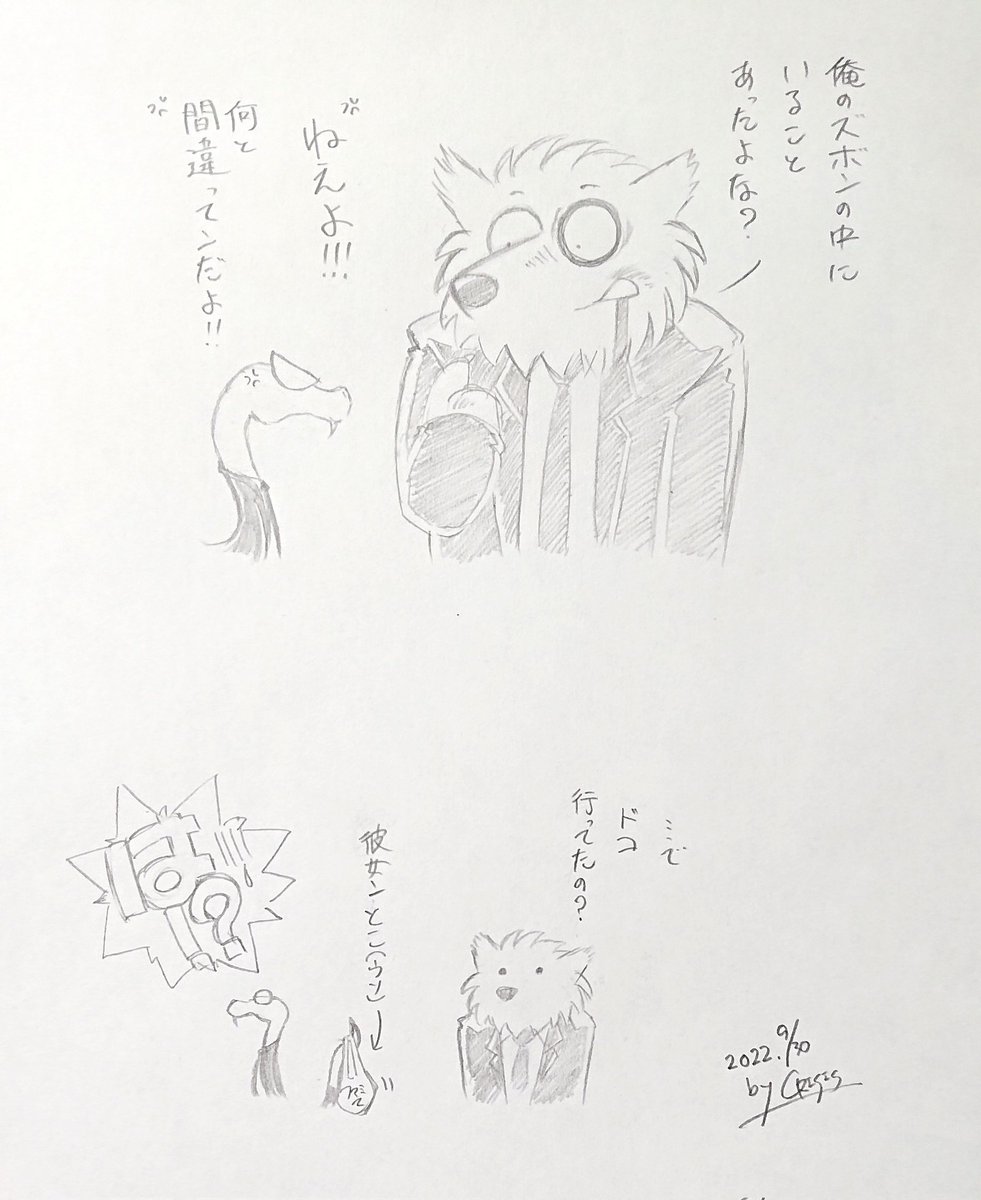 俺のズボンの中に
いること
あったよな?
ねえよ!!!
何と
間違ってンだよ!!
…で
ドコ
行ってたの?
彼女ンとこ(ウソ)
は!?
2022.9/30
by